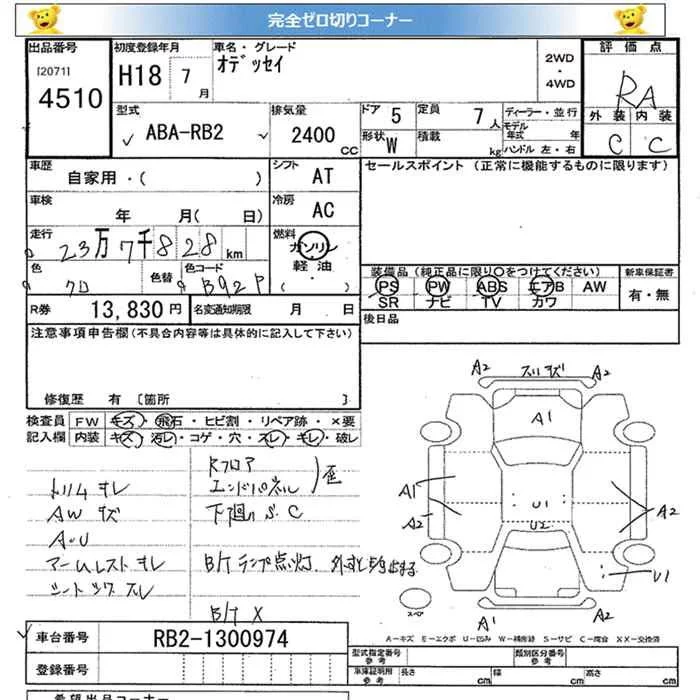 完全ゼロ切りコーナー
出品番号 初度登録年月 車名・グレード 評価点
[20711
4510 H18 7月 オデッセイ 2WD・4WD RA
型式 排気量 ドア 5 定員 7人 ディーラー・並行 外装 内装
ABA-RB2 2400cc 形状 W 積載 kg モデル年式 年 C C
ハンドル 左・右
車歴 自家用・( ) シフト AT セールスポイント (正常に機能するものに限ります)
車検 年 月( 日) 冷房 AC
走行 23万7千828km 燃料 ガソリン
軽油・
( )
色 クロ 色替 色コード B92P
装備品 (純正品に限り○をつけてください) 新車保証書
PS PW ABS エアB AW 有・無
SR ナビ TV カワ
R券 13,830円 名変通知期限 月 日 後日品
注意事項申告欄(不具合内容等は具体的に記入して下さい)
修復歴 有 [箇所 ]
検査員 FW キズ・飛石・ヒビ割・リペア跡・×要
記入欄 内装 キズ・汚レ・コゲ・穴・スレ・キレ・破レ
Rフロア
エンドパネル 歪
トリムオレ
AWキズ 下廻りS.C
A・U
アームレストオレ B/Tランプ点灯.
シート スレ
B/T X
A2 スリキズ A2
A1
A1
A2 U1 A2
U2
U1
スペア
A1 A2
A-キズ E-エクボ U-凹み W-補修跡 S-サビ C-腐食 XX-交換済
車台番号 RB2-1300974
登録番号
型式指定番号 参考 類別区分番号 参考
車庫証明用 参考 長さ cm 幅 cm 高さ cm
希望出品コーナー